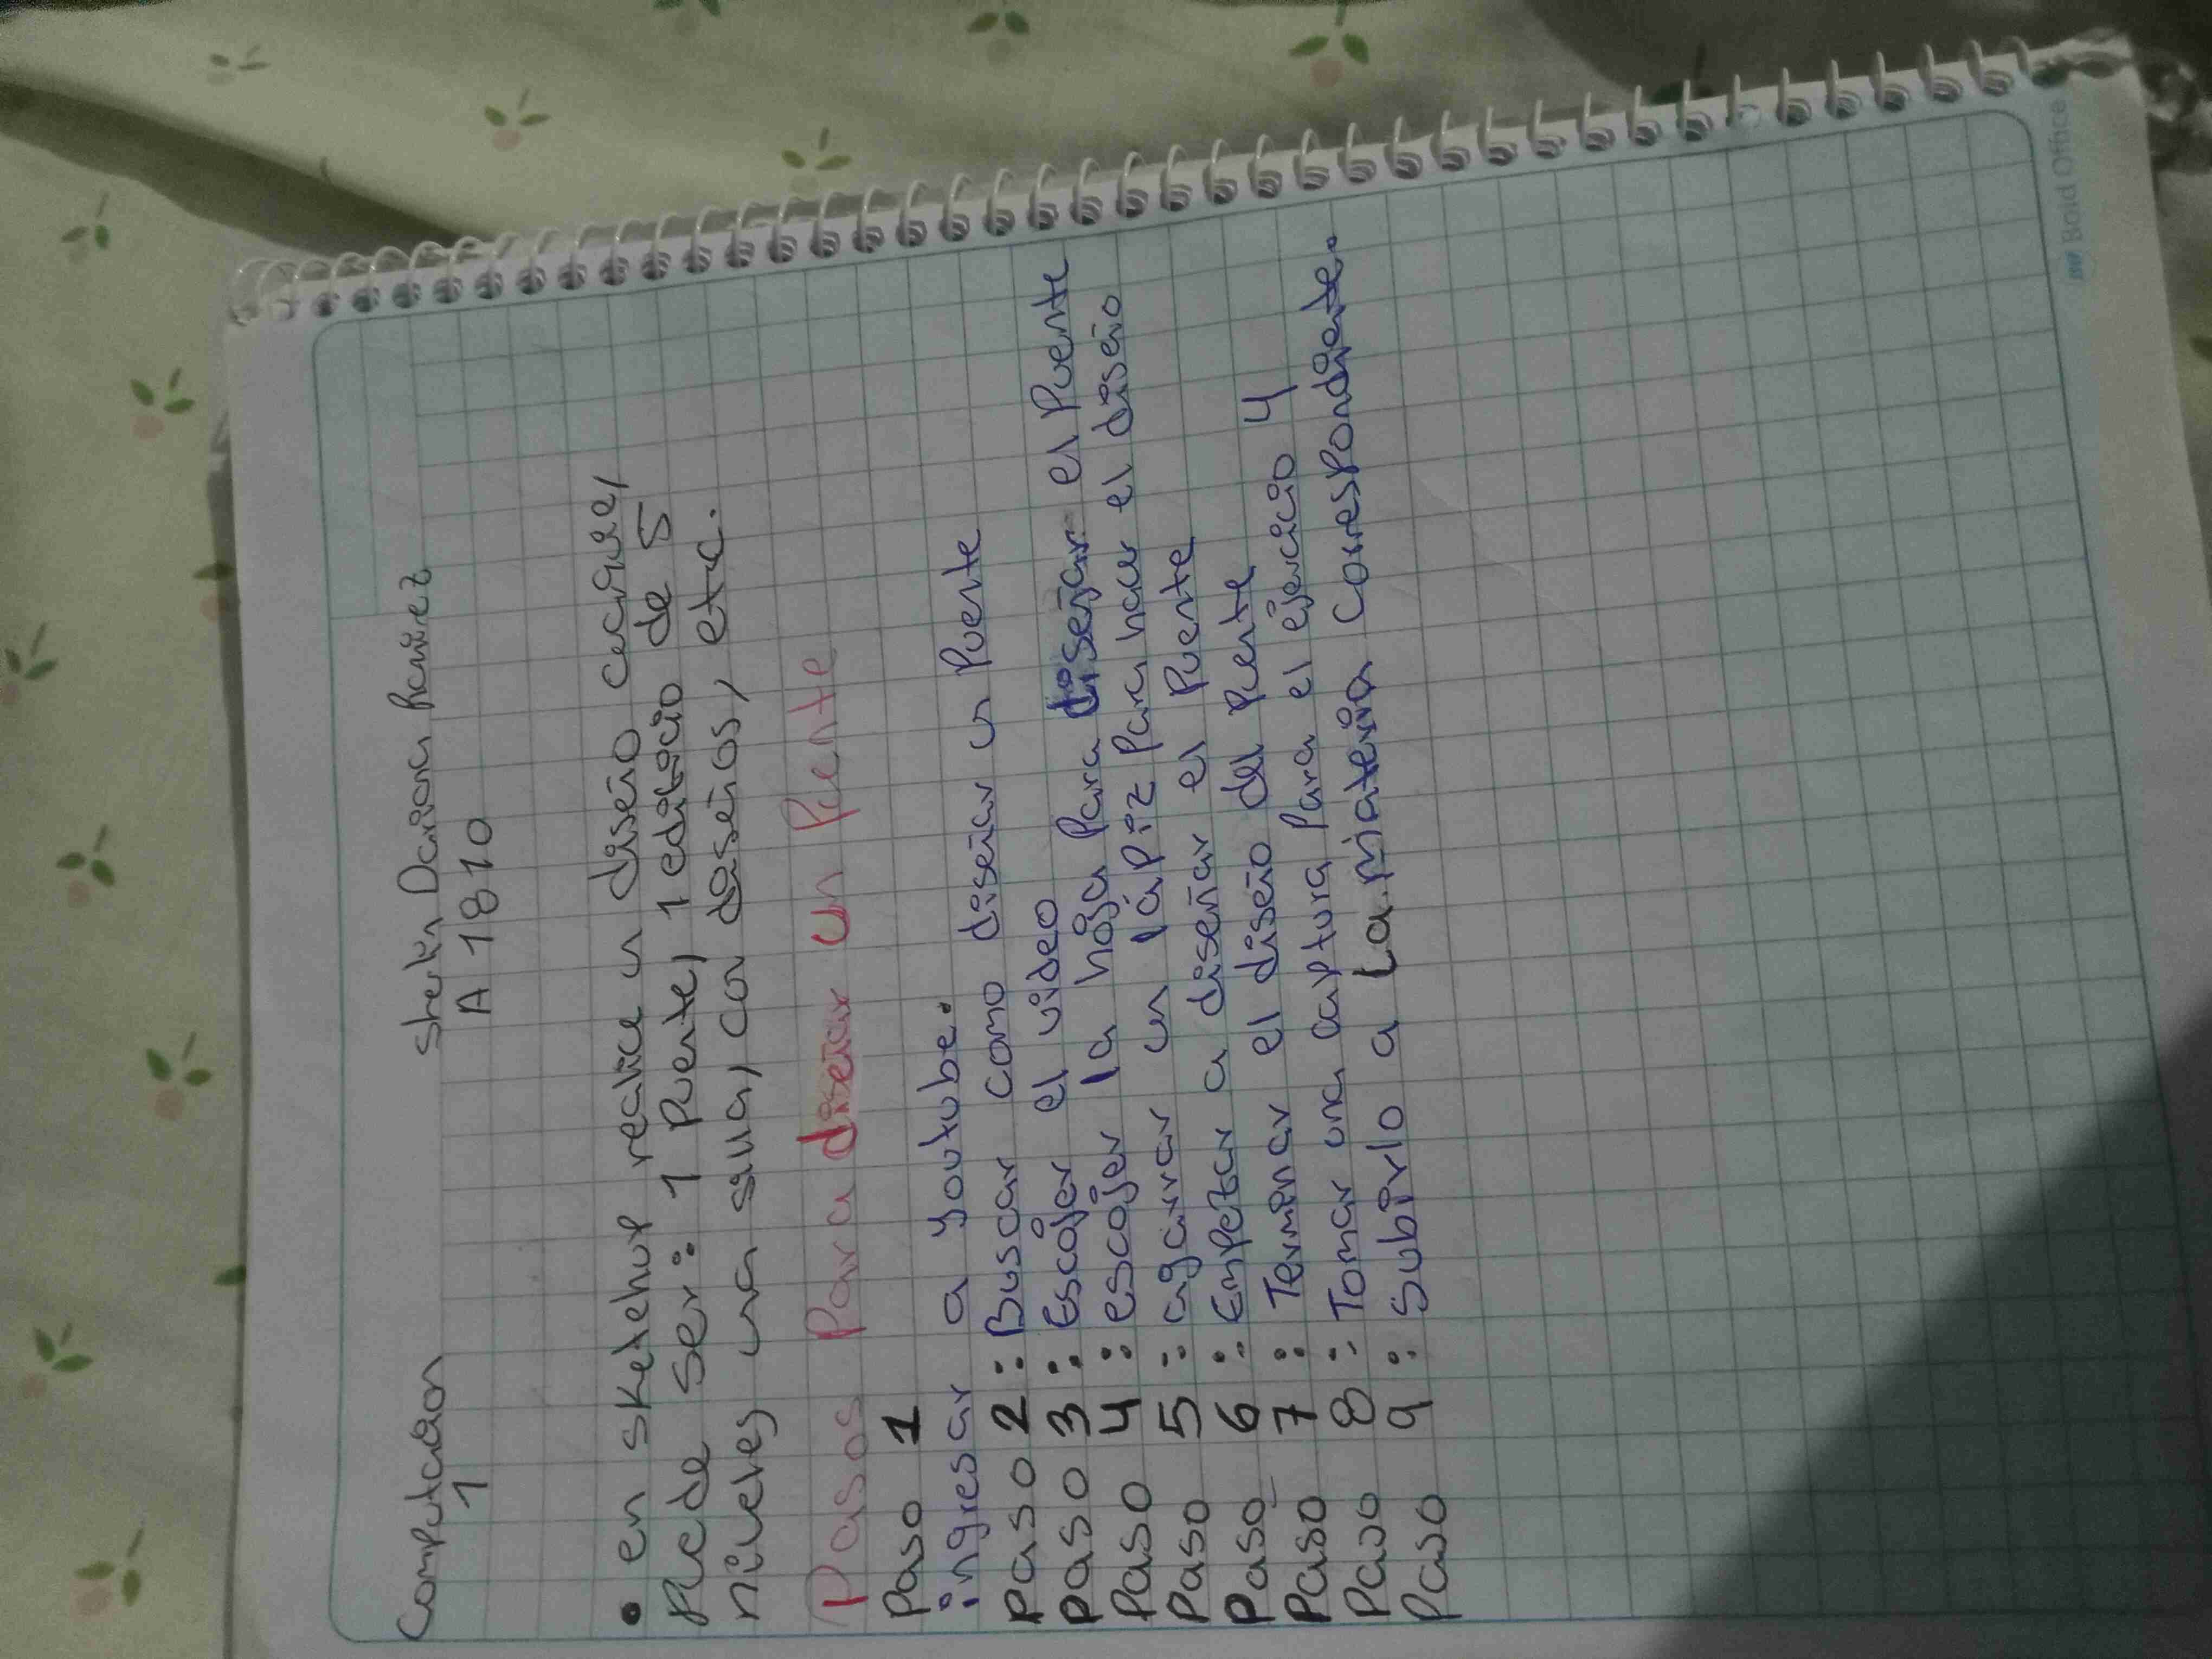 Computación
1
Dariana Ramirez
A 1810
• en sketehup realice un diseño
Puede ser: 1 Puente, 1 edificio de 5
niveles una silla, con diseños, etc.
Pasos Para diseñar un Puente
Paso 1
ingresar a youtube.
Paso 2: Buscar como diseñar un Puente
Paso 3: Escojer el video
Paso 4: escojer la hoja Para diseñar el Puente
Paso 5: agarrar un lápiz Para hacer el diseño
Paso 6: Empezar a diseñar el Puente
Paso 7: Terminar el diseño del Puente
Paso 8: Tomar una captura Para el ejercicio 4
Paso 9: Subirlo a La materia Correspondiente.
Bold Office